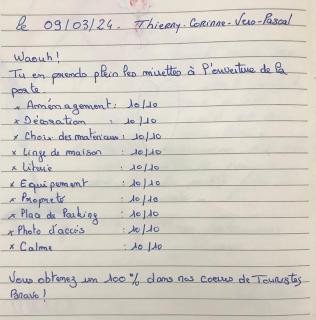 le 09/03/24. Thierry-Corinne-Vero-Pascal
Waouh!
Tu en prends plein les mirettes à l'ouverture de la
porte.
× Aménagement : 10/10
× Décoration : 10/10
× Choix des matériaux : 10/10
× Linge de maison : 10/10
× Literie : 10/10
× Equipement : 10/10
× Propreté : 10/10
× Place de Parking : 10/10
× Photo d'accès : 10/10
× Calme : 10/10
Vous obtenez un 100% dans nos coeurs de Touristes
Bravo!